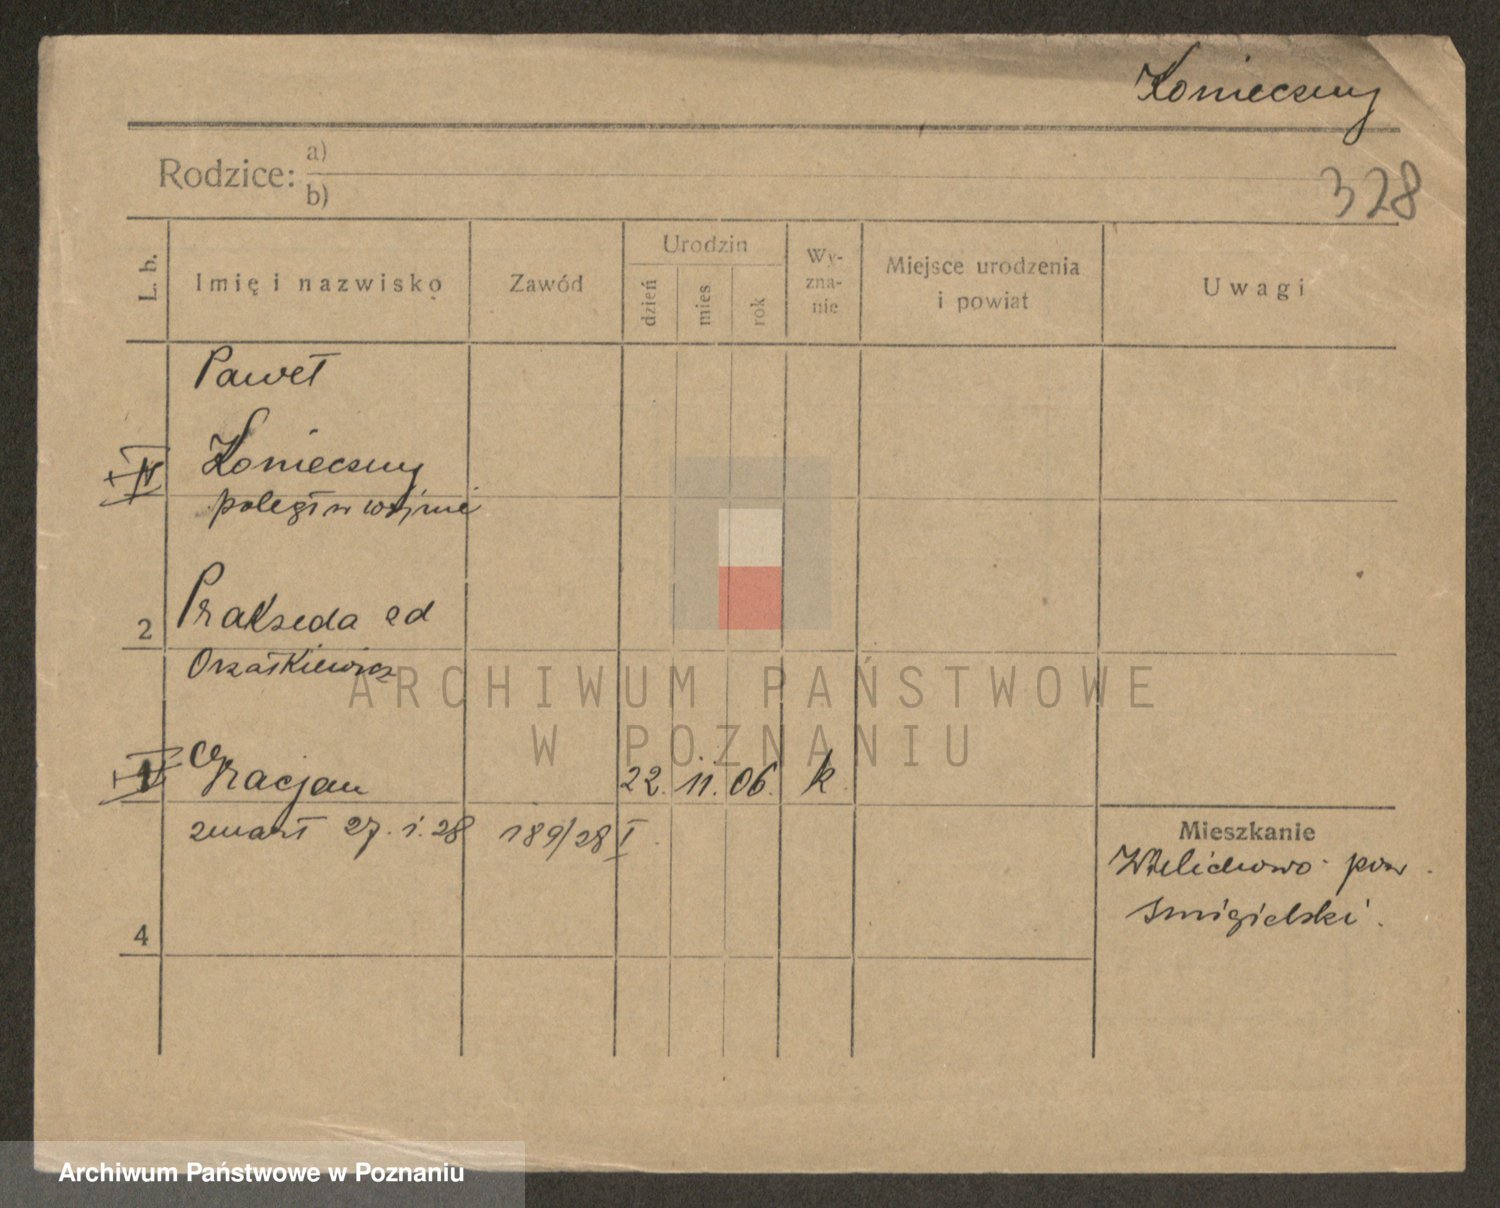 Konieczny
Rodzice: a)
b)
328
L. b.
Imię i nazwisko
Zawód
Urodzin
dzień
mies.
rok
Wy-
zna-
nie
Miejsce urodzenia
i powiat
Uwagi
Paweł
Konieczny
poległ w wojnie
2 Prakseda
ARCHIWUM PAŃSTWOWE
W POZNANIU
Gracjan 22. 11. 06. k.
zmarł 27. 1. 28 189/28 I
4
Mieszkanie
Wielichowo pow.
Śmigielski.
Archiwum Państwowe w Poznaniu